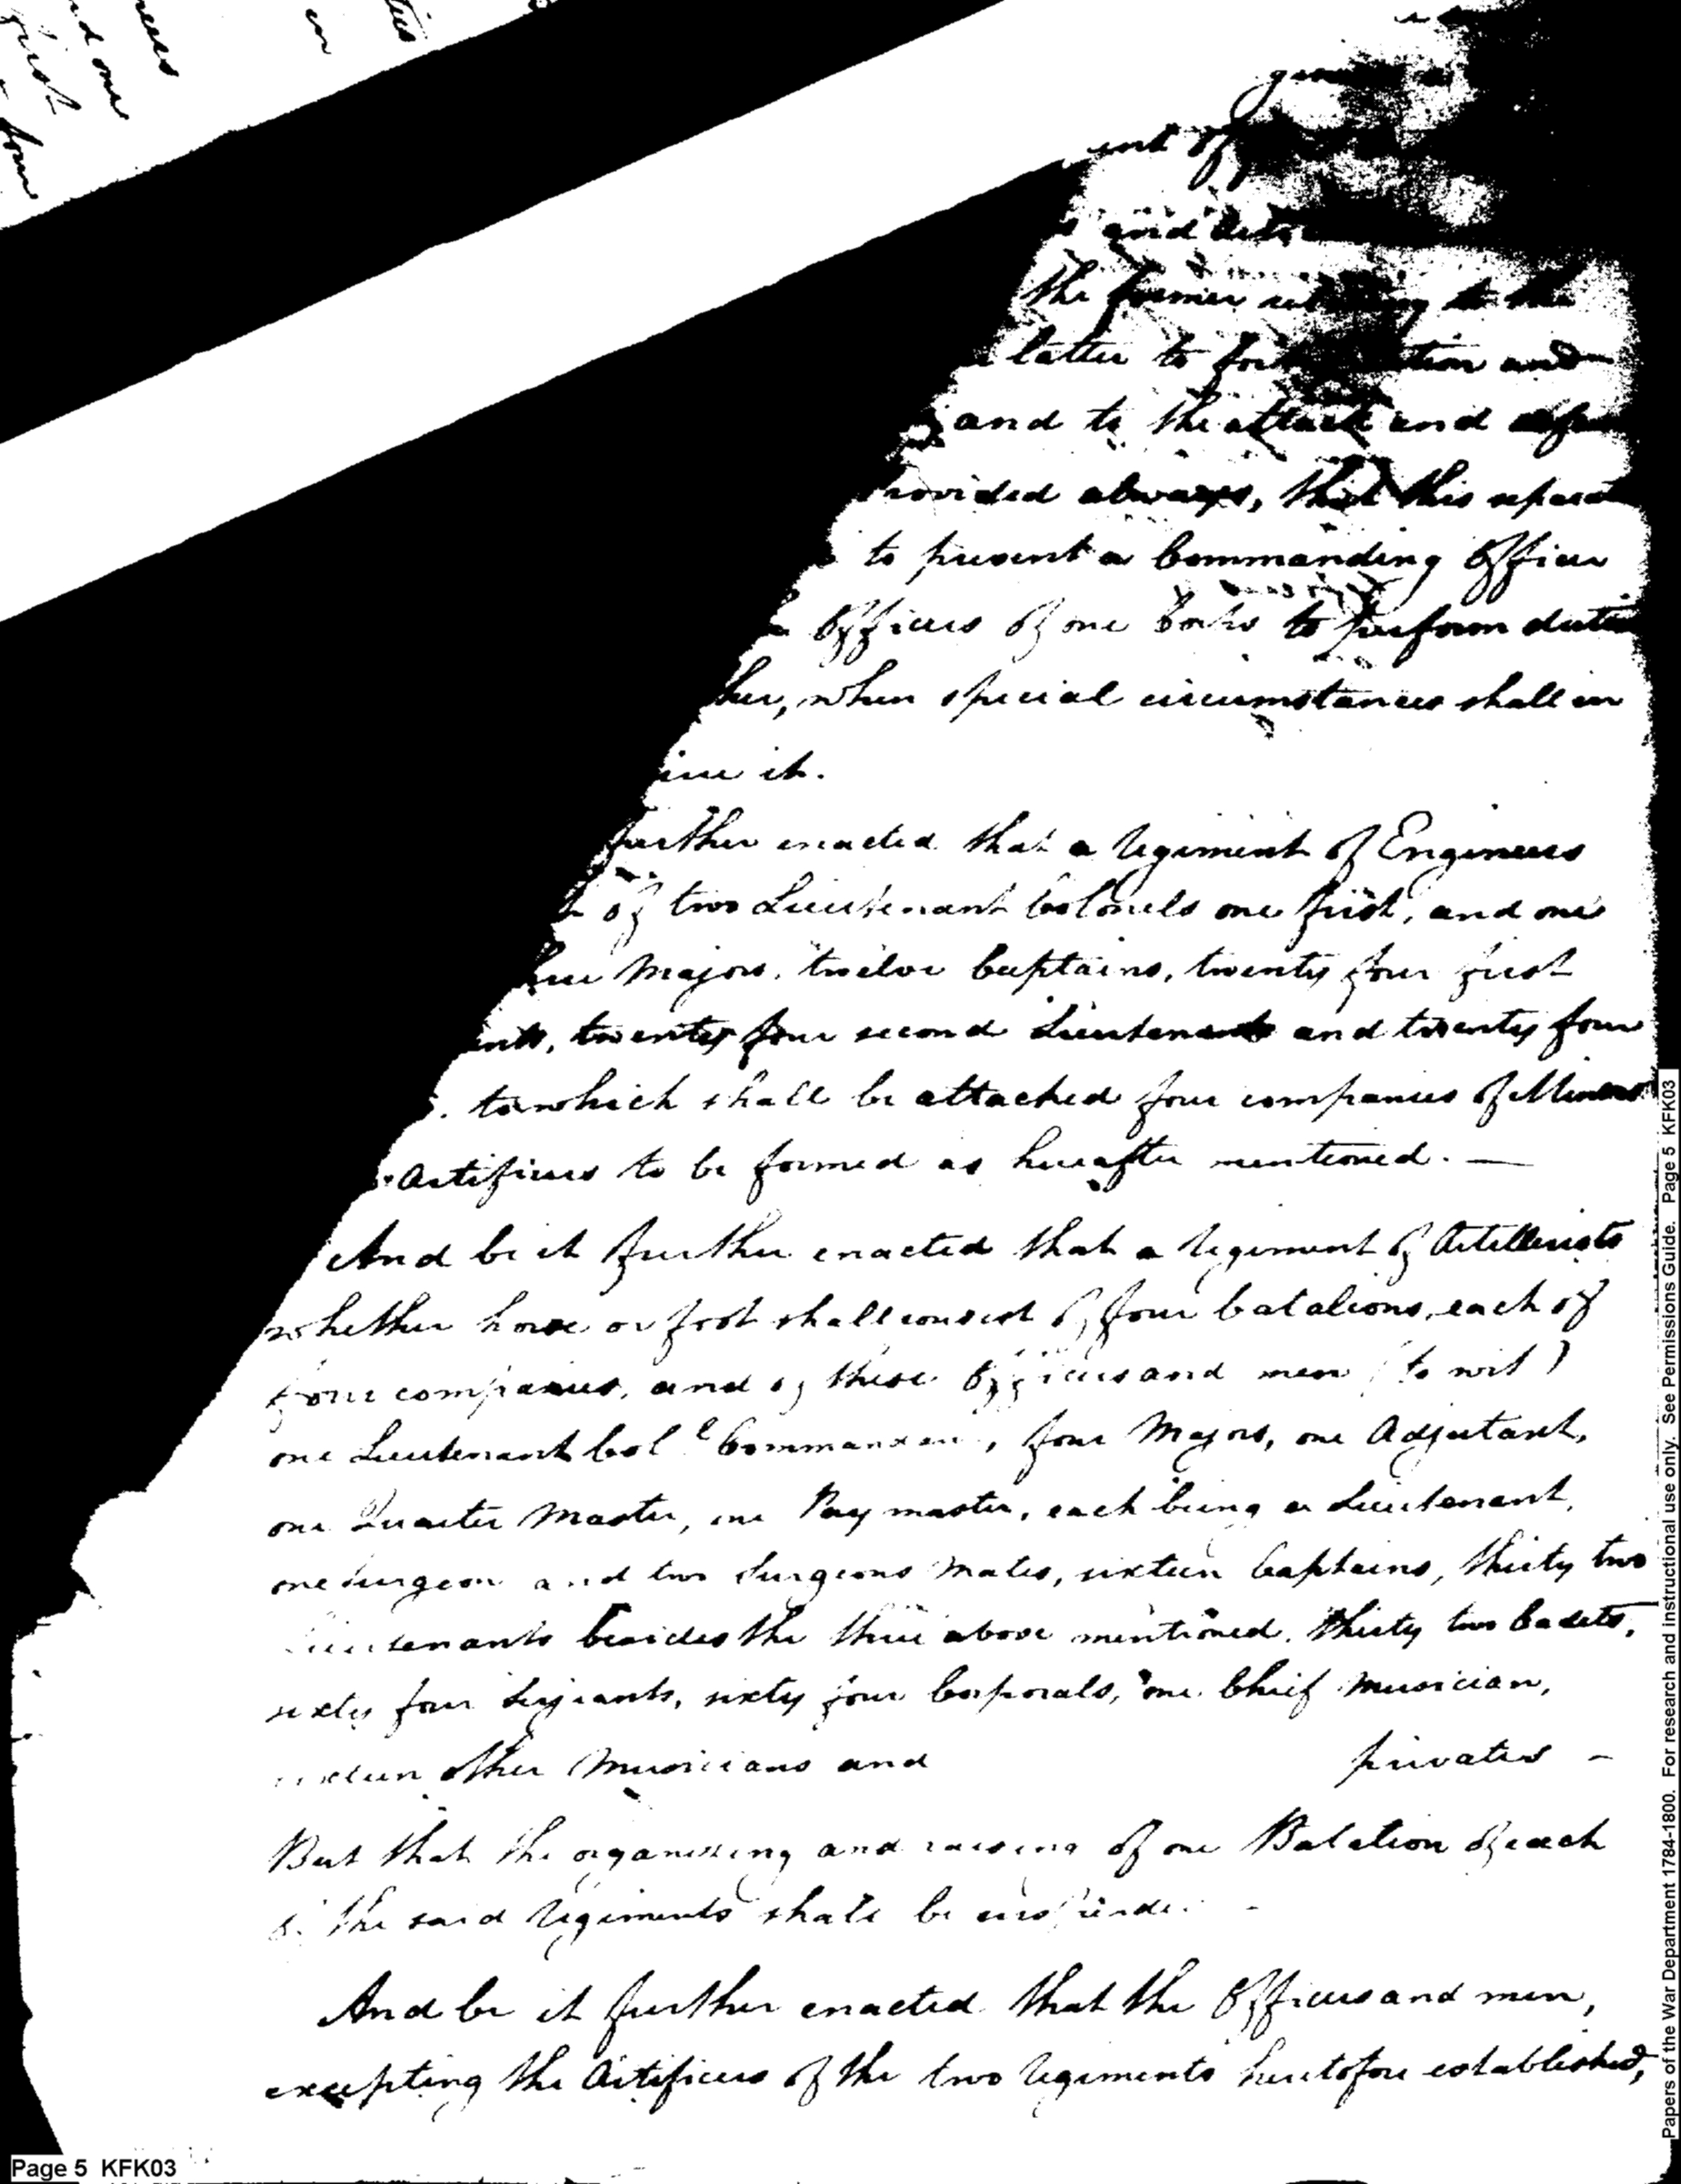 and
the former relating to the
latter to and
and to the attack and
rovided always, that this separat
to prevent a Commanding Officer
Officers of one Corps to perform dutie
her, when special circumstances shall in
it.
further enacted that a regiment of Engineers
of two Lieutenant Colonels one first, and one
Majors, twelve Captains, twenty four first
ants, twenty four second Lieutenants and twenty four
to which shall be attached four companies of Miners
Artificers to be formed as hereafter mentioned. —
And be it further enacted that a regiment of Artillerists
whether horse or foot shall consist of four batalions, each of
four companies, and of these Officers and men (to wit)
one Lieutenant Col.l Commandant, four Majors, one Adjutant,
one Quarter Master, one Pay master, each being a Lieutenant,
one Surgeon and two Surgeons Mates, sixteen Captains, thirty two
Lieutenants besides the three above mentioned, thirty two Cadets,
sixty four Serjeants, sixty four Corporals, one Chief Musician,
sixteen other Musicians and privates —
But that the organising and raising of one Batalion of each
of the said regiments shall be suspended.
And be it further enacted that the Officers and men,
excepting the Artificers of the two regiments heretofore established,
Page 5 KFK03
Papers of the War Department 1784-1800. For research and instructional use only. See Permissions Guide. Page 5 KFK03